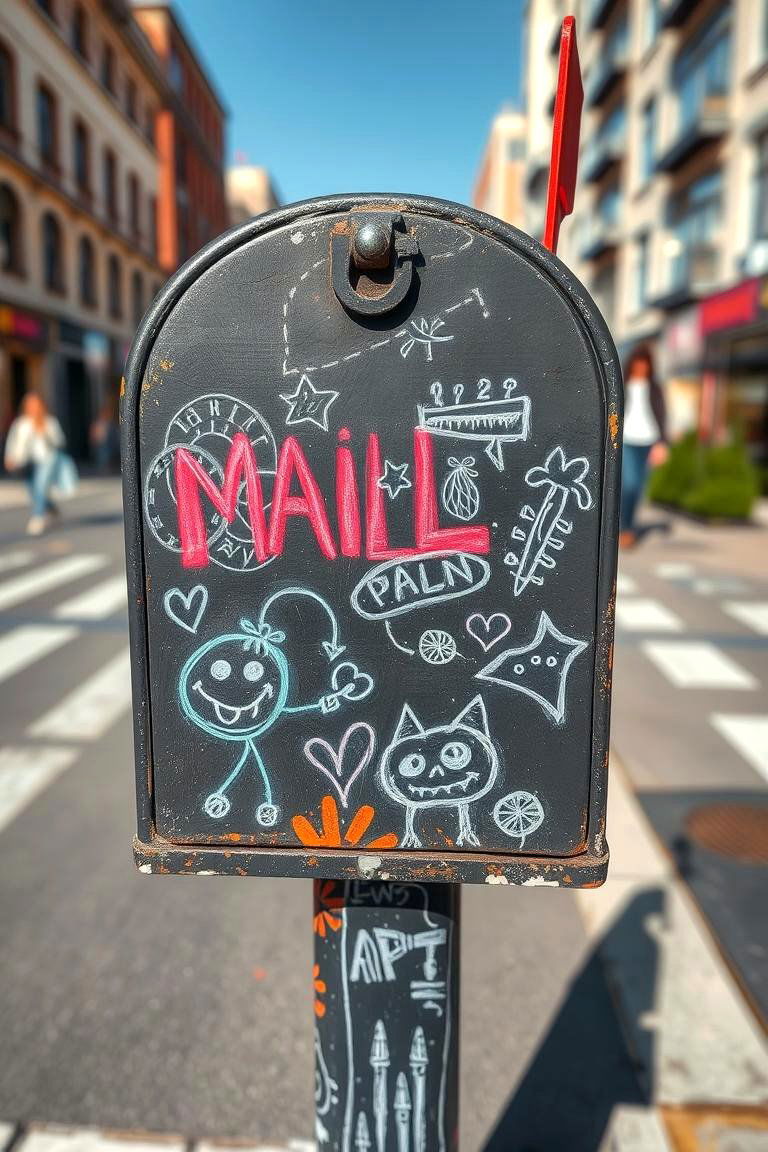 MAiLL
PALN
APT